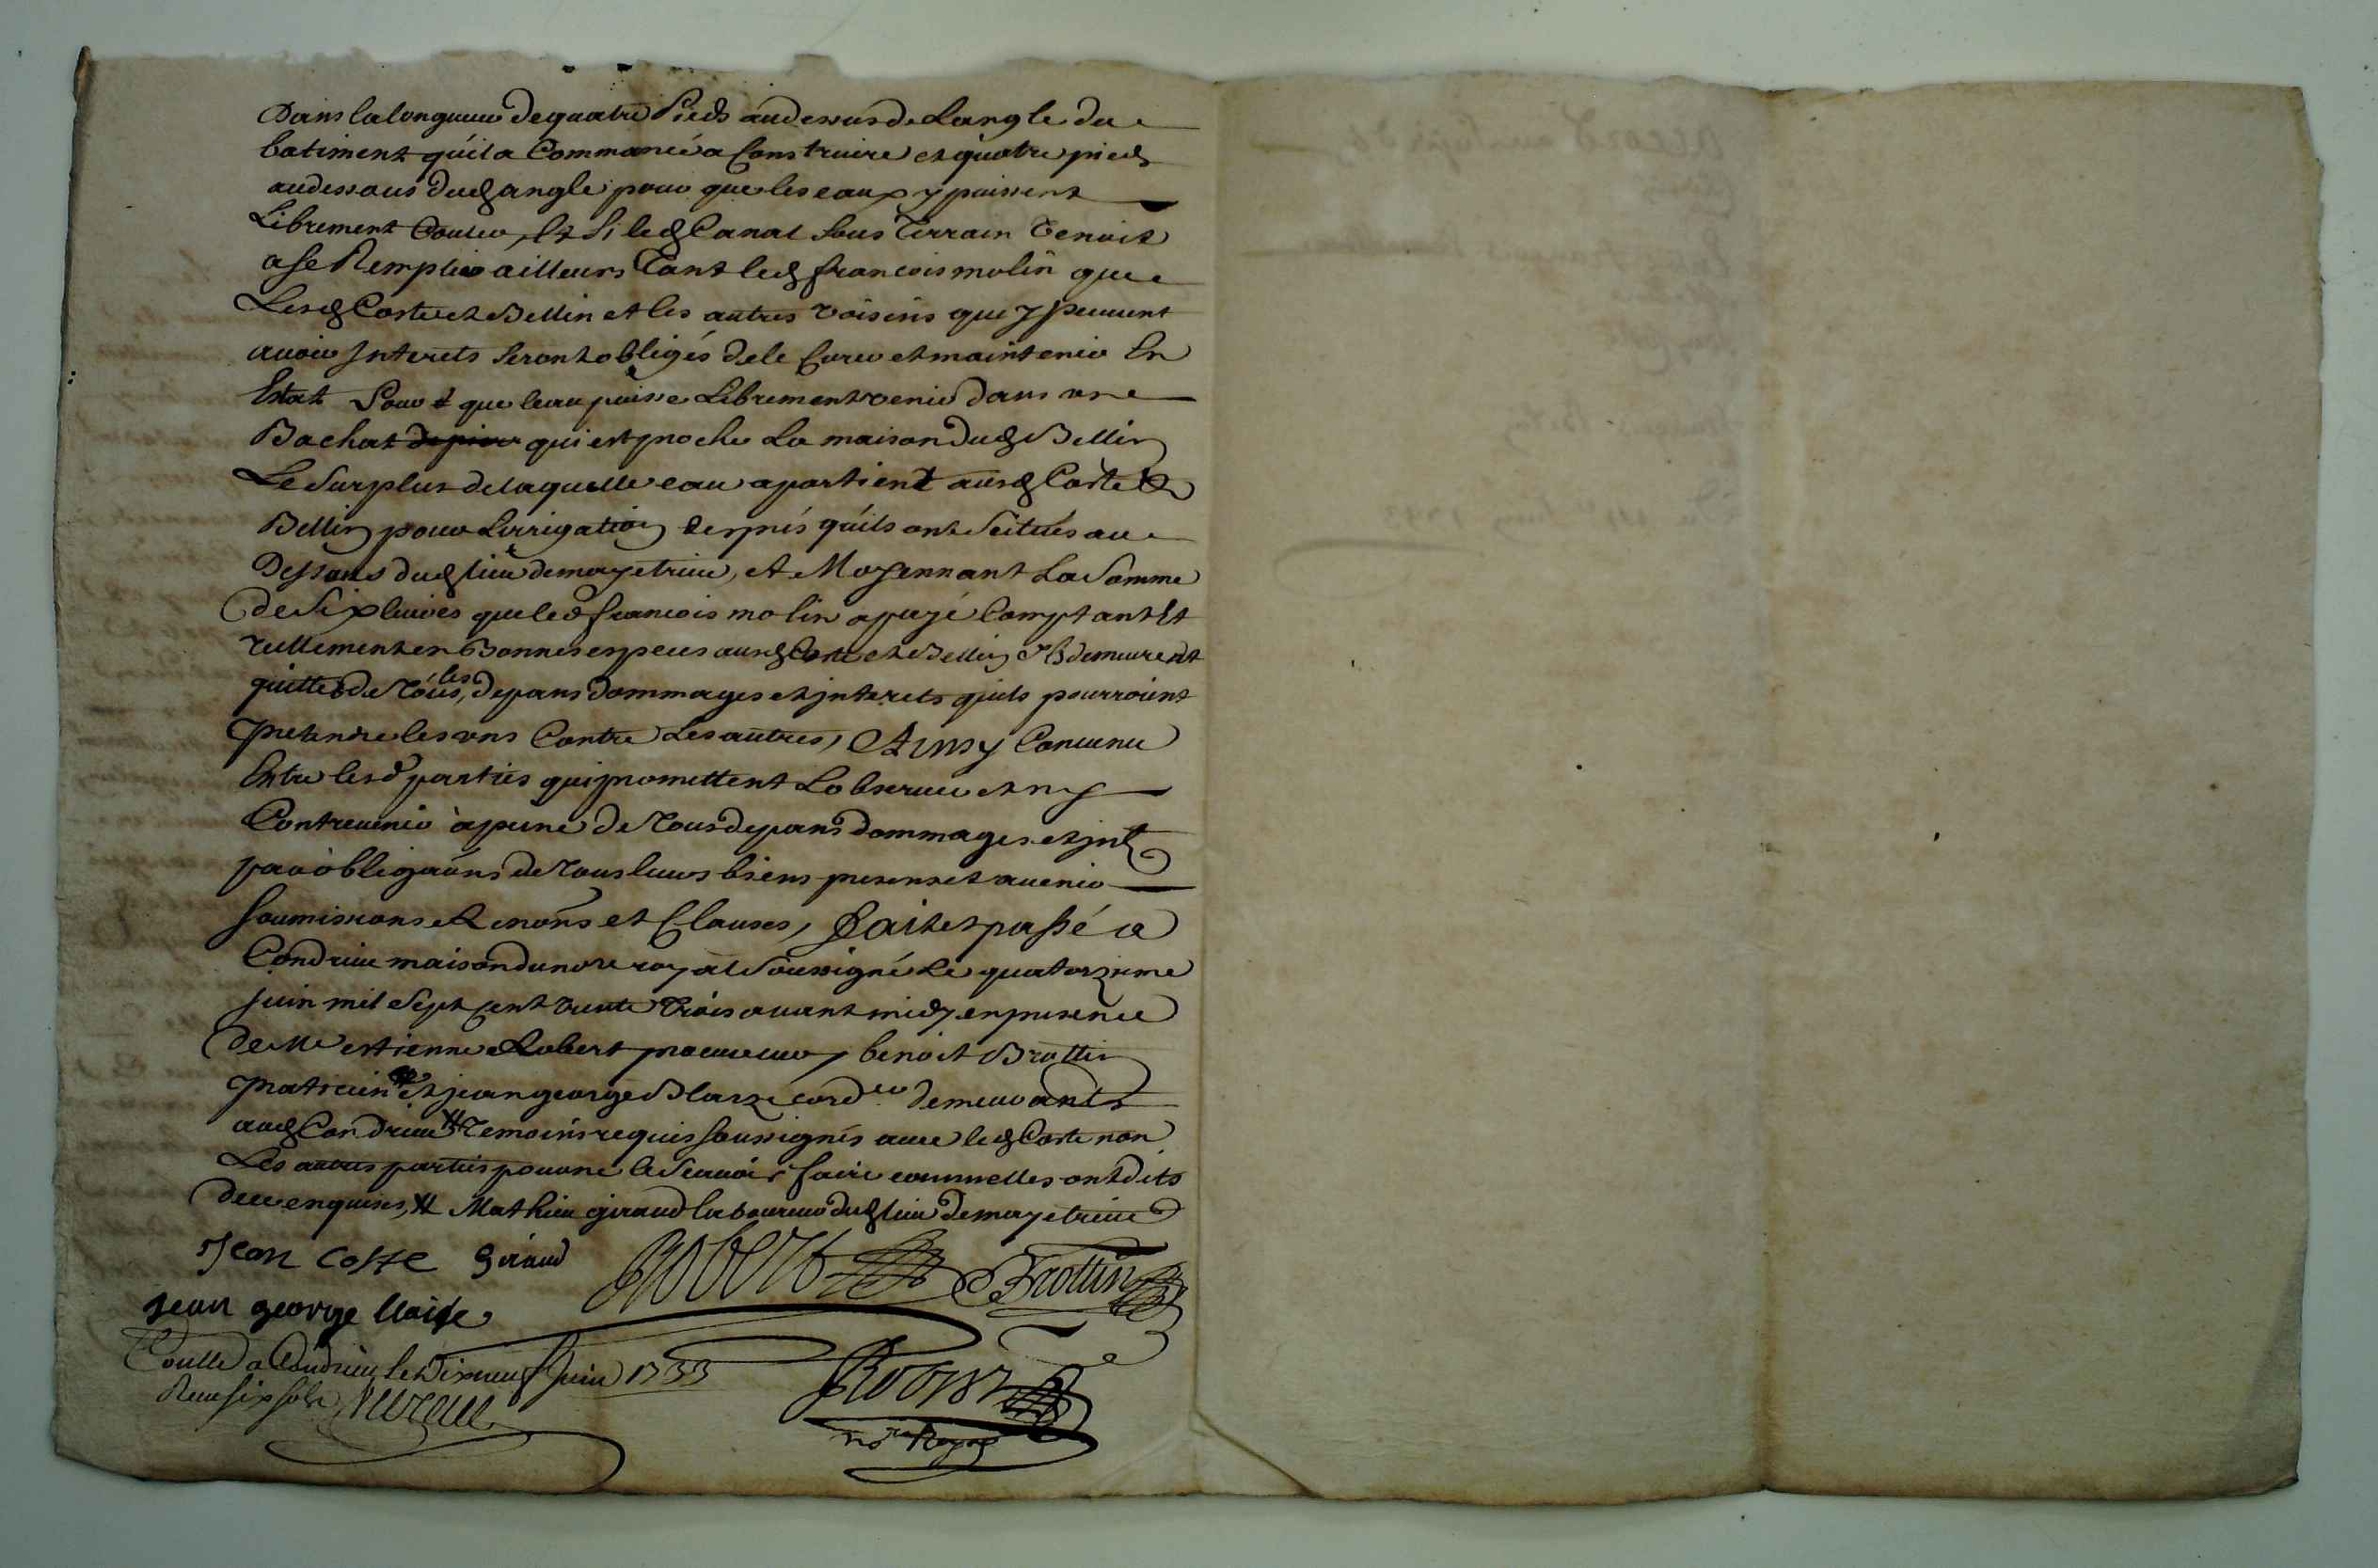 Dans la longueur de quatre Pieds audessus de Langle du
batiment qu'il a Commancé a Construire et quatre pieds
audessous dud angle pour que les eaux y puissent
Librement Couler, Et Si led Canal sous Terrain Venoit
a se Remplir ailleurs Tant led francois molin que
Lesd Coste et Bellin et les autres voisins que y peuuent
auoir Interets seront obligés de le Curer et maintenir En
Estat Pour que leau puisse Librement venir dans une
Bachat qui est proche La maison dud Bellin
Le Surplus de laquelle eau apartient ausd Coste Et
Bellin pour Lirrigation des prés quils ont Scitués au
Dessous dud lieu de mayetrieu, et Moyennant La Somme
de Six liures que led francois molin a payé Comptant Et
reellement en Bonnes especes ausd Coste et Bellin Ils demeurent
quittes de Tous les depans dommages et jnterets quils pourroient
Pretendre les vns Contre Les autres, Ainsy Conuenu
Entre lesd parties qui promettent Lobseruer et ny
Contreuenir à peine de Tous depans dommages et jnt
par obligaons de Tous leurs biens presens et auenir
Soumissions Renons et Clauses, Fait et passé a
Condrieu maison du nore royal Soussigné Le quatorzieme
juin mil Sept cent trente Trois auant midy en presence
de Me estienne Robert procureur, benoit Brottin
praticien et jean george Blaize corder demeurants
aud Condrieu Temoins requis soussignés auec led Coste non
Les autres parties pour ne le Scauoir faire comme elles ont dits
de ce enquises, Mathieu giraud laboureur dud lieu de mayetrieu
Jean coste Giraud Robert Brottin
jean george blaise
Conllé a Condrieu le Dixneuf Juin 1733
Receu six sols
nore Royal